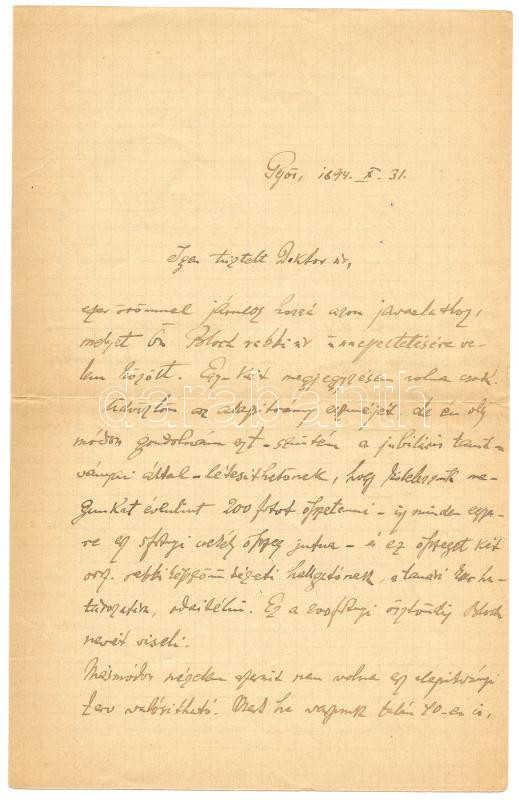 Győr, 1894. X. 31.
Igen tisztelt Doktor úr,
ezer örömmel járulok hozzá azon javaslathoz,
melyet Ön Bloch rabbi úr ünnepeltetésére ve-
lem közölt. Egy-két megjegyzésem volna csak.
Üdvözlöm az alapítvány eszméjét, de én oly
módon gondolnám ezt - szintén a jubiláris tanít-
ványai által - létesíthetőnek, hogy kötelezzük ma-
gunkat évenként 200 frtot összetenni - úgy minden egyre
egy frtnyi összeg jutna - és ez összeget két
orsz. rabbiképző intézeti hallgatónak, a tanári kar ha-
tározatára, odaítélni. Ez a 200 frtnyi ösztöndíj Bloch
nevét viseli.
Másmódon nézetem szerint nem volna az alapítványi
terv valósítható. Mert ha vagyunk talán 40-en is,
darabanth